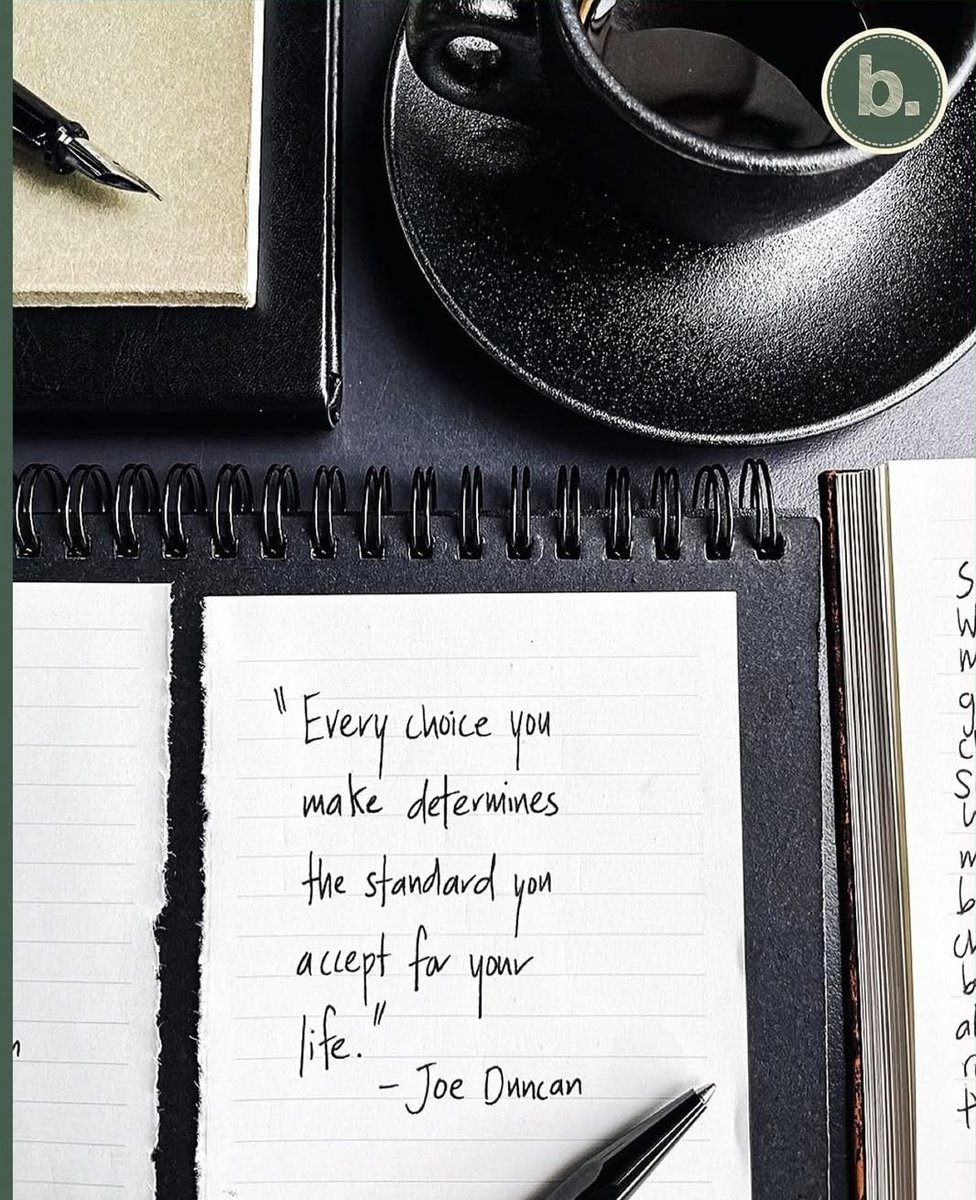 b.
"Every choice you
make determines
the standard you
accept for your
life."
- Joe Duncan